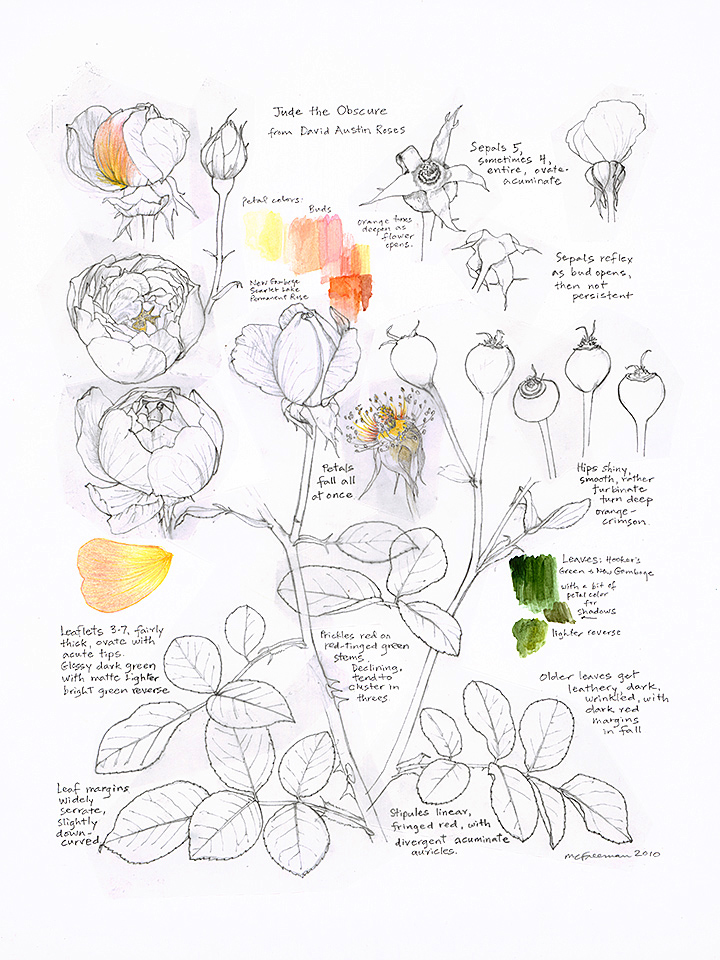 Jude the Obscure
from David Austin Roses
Sepals 5,
sometimes 4,
entire, ovate-
acuminate
Petal colors:
Buds
orange tones
deepen as
flower
opens.
Sepals reflex
as bud opens,
then not
persistent
New Gamboge
Scarlet Lake
Permanent Rose
Petals
fall all
at once
Hips shiny,
smooth, rather
turbinate
turn deep
orange-
crimson.
Leaves: Hooker's
Green & New Gamboge
with a bit of
petal color
for
shadows
lighter reverse
Leaflets 3-7, fairly
thick, ovate with
acute tips.
Glossy dark green
with matte lighter
bright green reverse
Prickles red on
red-tinged green
stems.
Declining,
tend to
cluster in
threes.
Older leaves get
leathery, dark,
wrinkled, with
dark red
margins
in fall
Leaf margins
widely
serrate,
slightly
down-
curved
Stipules linear,
fringed red, with
divergent acuminate
auricles.
mcfreeman 2010